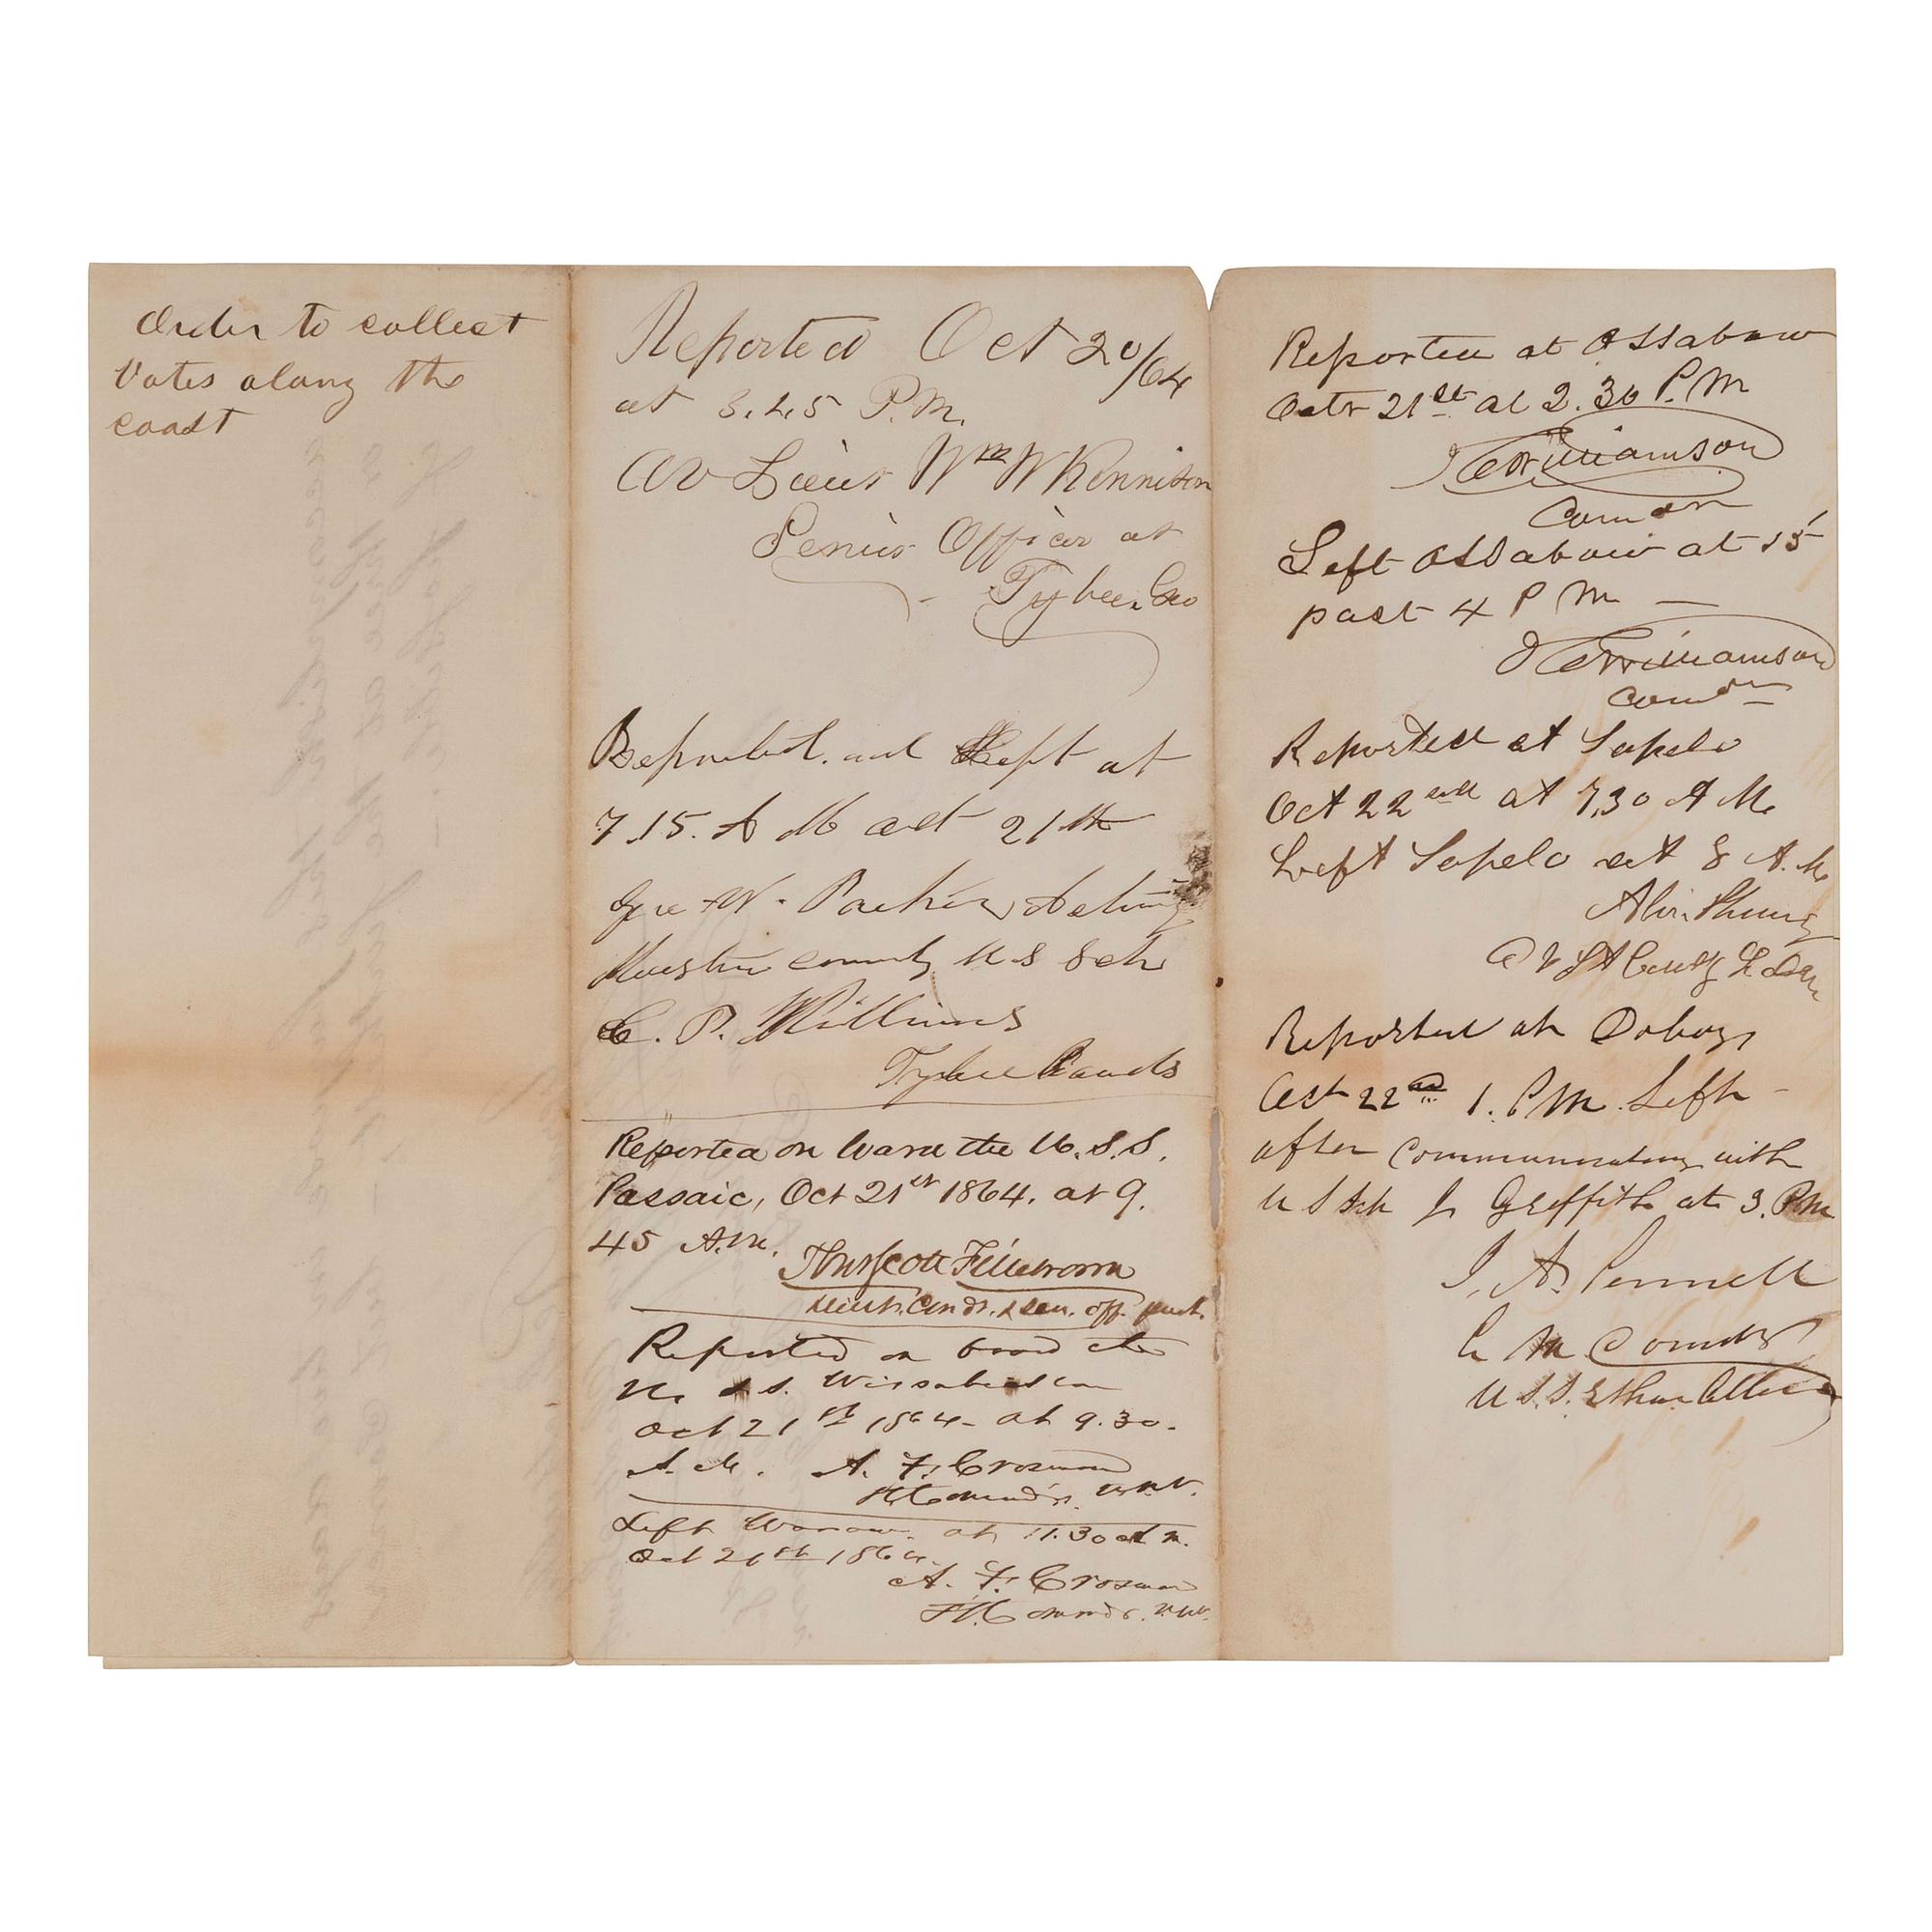 Order to collect
Votes along the
coast
Reported Oct 20/64
at 3.45 P.M.
AV Lieut Wm W Kennison
Senior Officer at
Tybee. Geo
Reported. and Left at
7.15. A M oct 21th
Geo W. Parker Acting
Master comdg U S Sch
C. P. Williams
Tybee Roads
Reported on board the U.S.S.
Passaic, Oct 21st 1864. at 9.
45 A.M.
Thos Scott Fillebrown
Lieut. Comdr. & Sen. off. prest.
Reported on board the
U. S. S. Wissahickon
Oct 21st 1864 at 9.30.
A. M. A. F. Crosman
Lt Commdr. U.S.N.
Left Warsaw. at 11.30 A M.
Oct 21st 1864.
A. F. Crosman
Lt. Commdr. U.S.N.
Reported at Ossabaw
Octr 21st at 2.30 P.M
J C Williamson
Comdr
Left Ossabaw at 15
past 4 P M —
J C Williamson
Comdr
Reported at Sapelo
Oct 22nd at 7.30 A M.
Left Sapelo at 8 A. M.
A V Lt Comdg
Reported at Doboy
Oct 22nd 1. P M. Left
after Communicating with
U S Sch J. Griffith at 3. PM
J. A. Pennell
A M Comdg
U.S.S. Ethan Allen